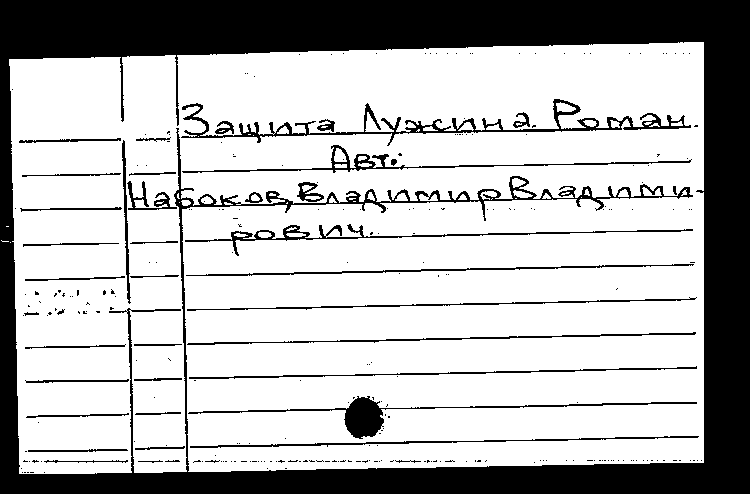 Защита Лужина. Роман.
Авт.:
Набоков, Владимир Владими-
рович.